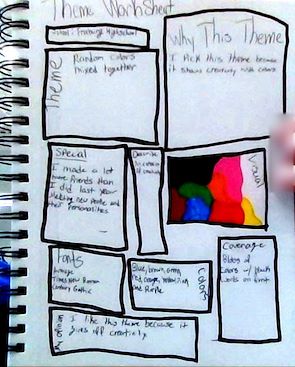 Theme Worksheet
School:
Highschool
Theme
Random Colors
mixed together
Why This Theme
I Pick this theme because
it shows creativity with colors.
Special
I made a lot
more friends than
I did last year
Meeting new People and
their personalities
Describe
Visual
Fonts
Times New Roman
Century Gothic
Blue, brown, green,
red, orange, yellow, Pink
and Purple
Colors
Coverage
Blobs of
Colors w/ Black
Words on front
I like this theme because it
gives off creativity.